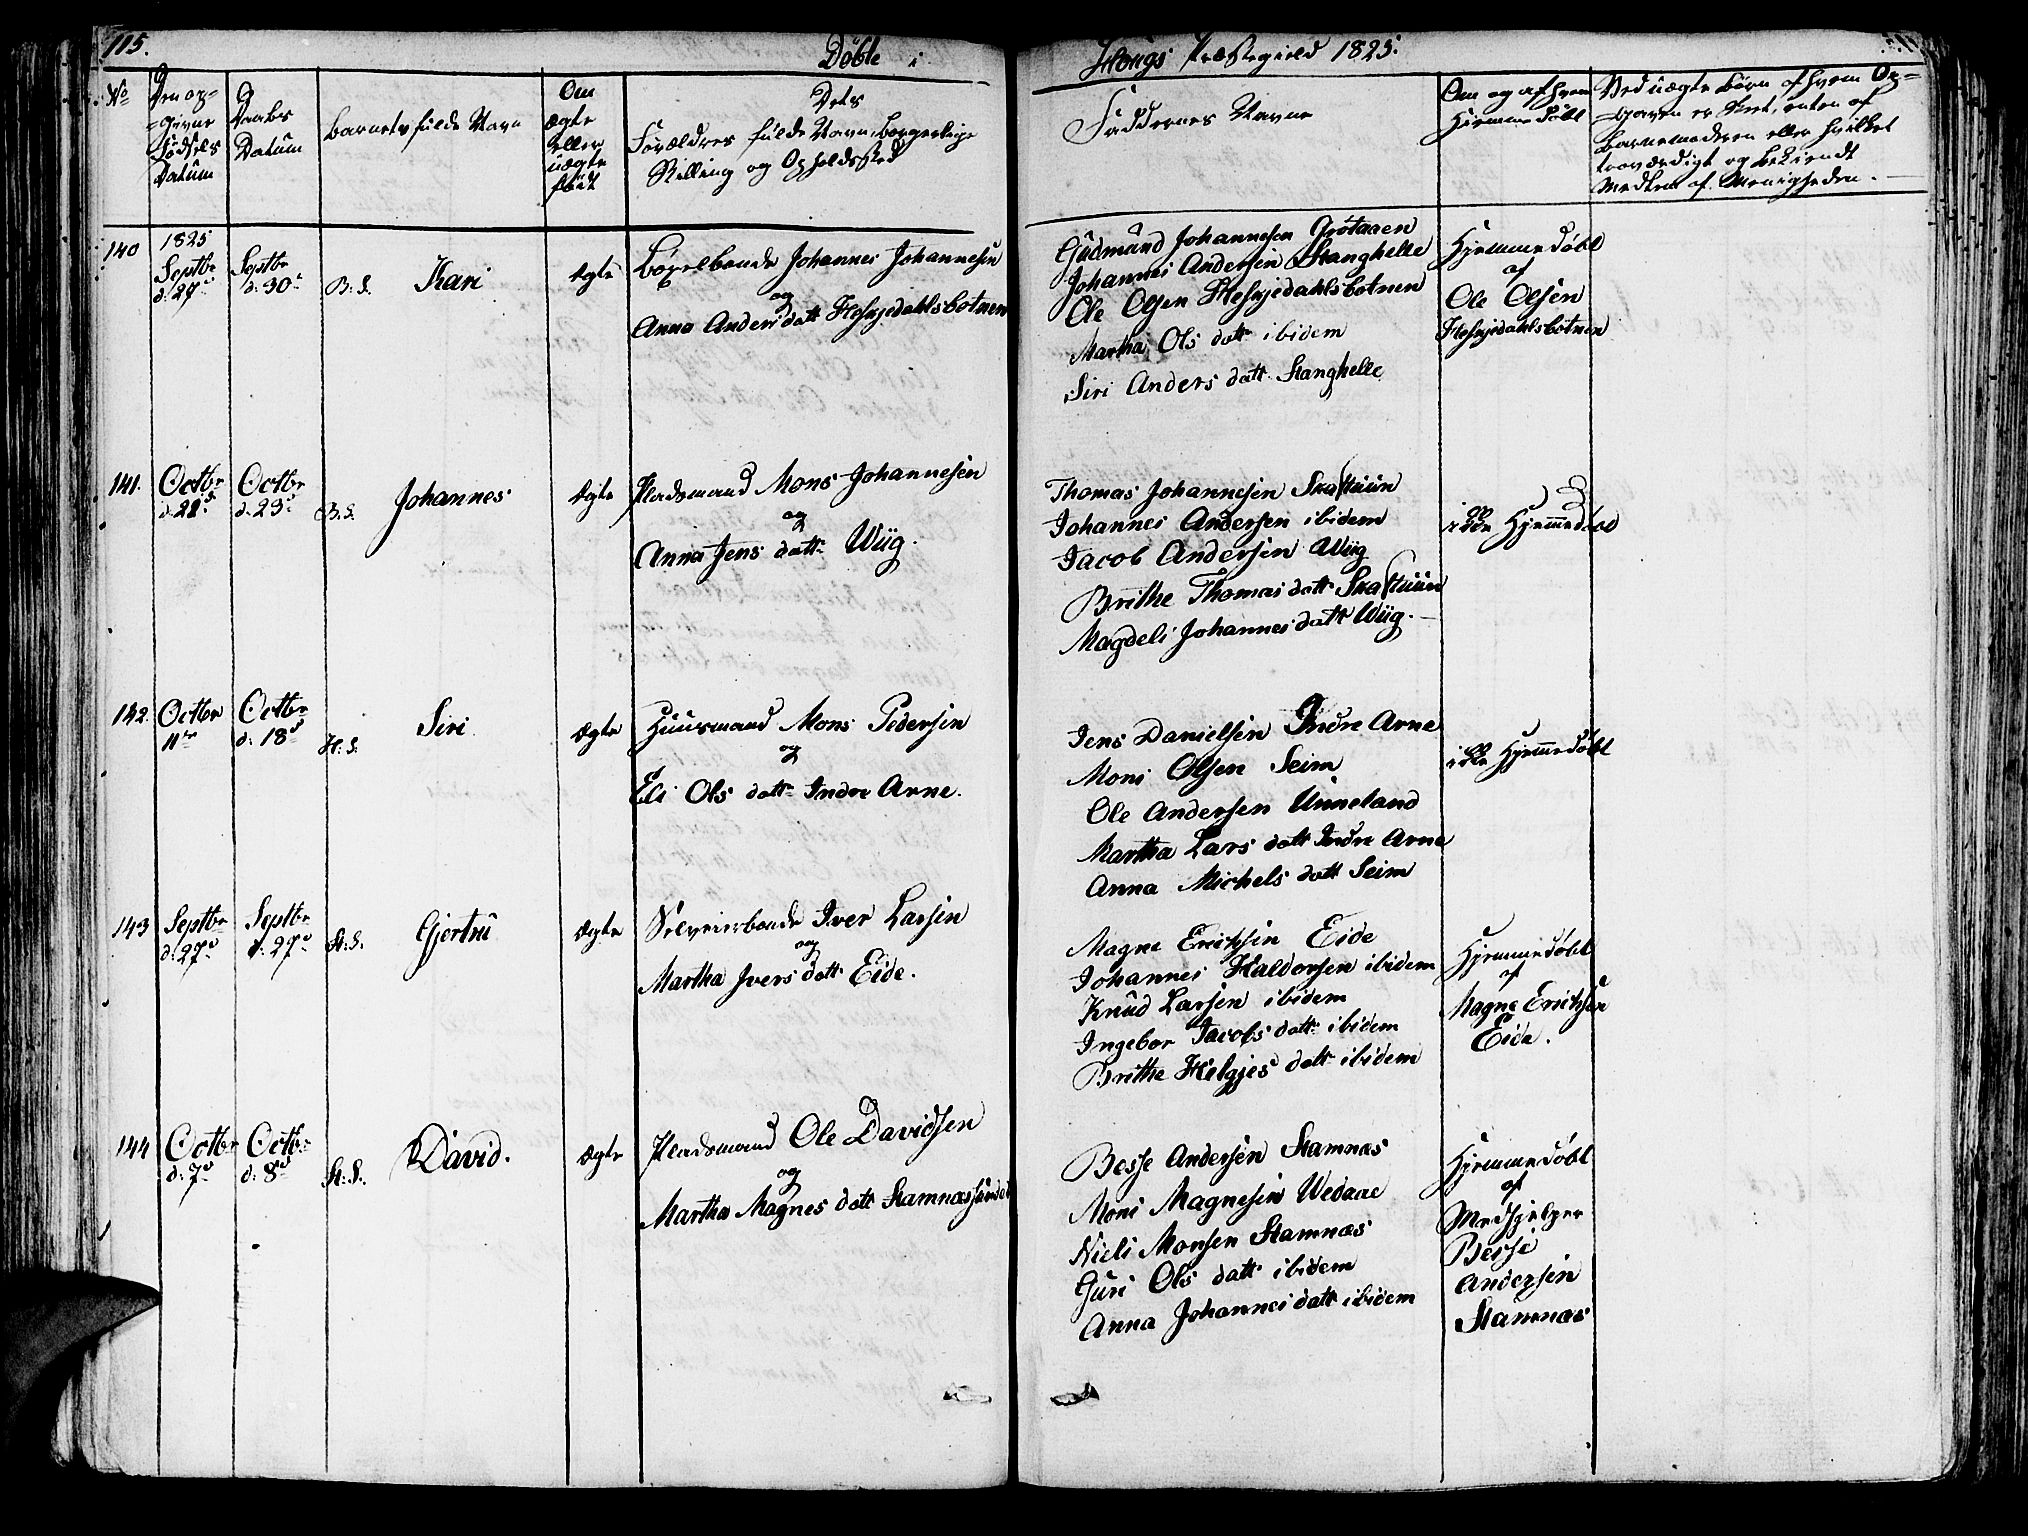 115.
Døbte i Hougs Præstegield 1825.
No
Den op-
-givne
Fødsels
Datum
Daabs
Datum
Barnets fulde Navn
Om
ægte
eller
uægte
født
Dets
Forældres fulde Navn, Borgerlige
Stilling og Opholdssted
Faddernes Navne
Om og af hvem
Hiemmedøbt
Ved uægte Børn af hvem Op-
-gaven er skeet, enten af
Barnemoderen eller hvilket
troværdigt og bekiendt
Medlem af Menigheden.
140
1825
Septbr
d. 27de
Septbr
d. 30te
B. S.
Kari
Ægte
Bøxelbonde Johannes Johannesen
og
Anna Anders datt Hesjedahlsbotnen
Gudmund Johannesen Grøtaaen
Johannes Andersen Stanghelle
Ole Olsen Hesjedahlsbotnen
Martha Ols datt ibidem
Siri Anders datt Stanghelle
Hjemmedøbt
af
Ole Olsen
Hesjedahlsbotnen
141.
Octbr
d. 21d
Octbr
d. 23d
B. S.
Johannes
Ægte
Pladsmand Mons Johannesen
og
Anna Jens datt Wiig.
Thomas Johannesen Skaftuun
Johannes Andersen ibidem
Jacob Andersen Wiig
Brithe Thomas datt Skaftuun
Magdeli Johannes datt Wiig.
ikke Hjemmedøbt
142.
Octbr
11te
Octbr
d. 18d
H. S.
Siri
Ægte
Huusmand Mons Pedersen
og
Eli Ols datt Indre Arne.
Jens Danielsen Indre Arne
Mons Olsen Seim
Ole Andersen Unneland
Martha Lars datt Indre Arne
Anna Michels datt Seim
ikke Hjemmedøbt
143
Septbr
d. 27d
Septbr
d. 27d
St. S.
Gjertru
Ægte
Selveierbonde Iver Larsen
og
Martha Ivers datt Eide.
Magne Erichsen Eide
Johannes Haldorsen ibidem
Knud Larsen ibidem
Ingebor Jacobs datt ibidem
Brithe Helgjes datt ibidem
Hjemmedøbt
af
Magne Erichsen
Eide.
144
Octbr
d. 7d
Octbr
d. 8d
St. S.
David.
Ægte
Pladsmand Ole Davidsen
og
Martha Magnes datt Stamnæssundet
Besse Andersen Stamnæs
Mons Magnesen Wedaae
Niels Monsen Stamnæs
Guri Ols datt ibidem
Anna Johannes datt ibidem
Hjemmedøbt
af
Medhjelper
Besse
Andersen
Stamnæs